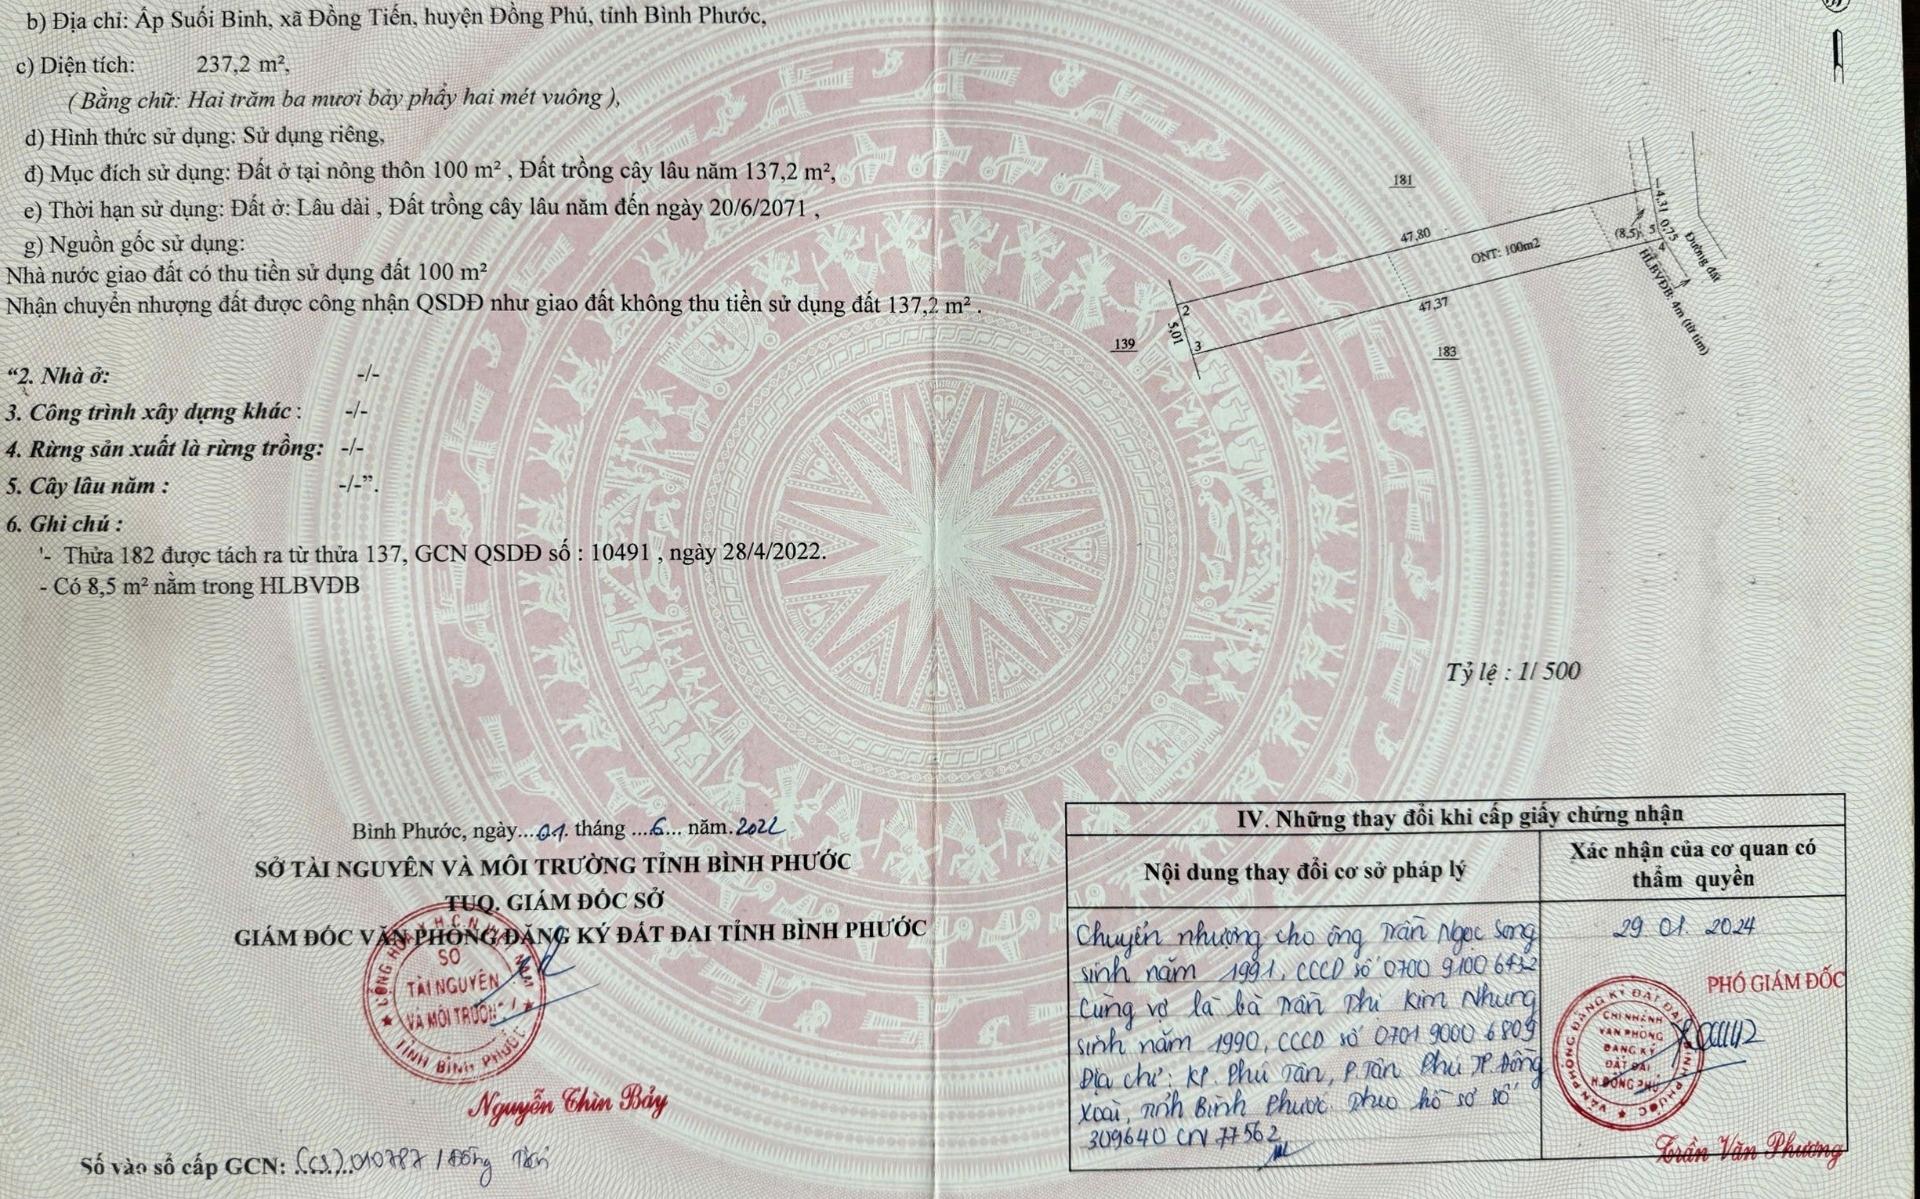 b) Địa chỉ: Ấp Suối Binh, xã Đồng Tiến, huyện Đồng Phú, tỉnh Bình Phước,
c) Diện tích: 237,2 m²,
( Bằng chữ: Hai trăm ba mươi bảy phẩy hai mét vuông ),
d) Hình thức sử dụng: Sử dụng riêng,
đ) Mục đích sử dụng: Đất ở tại nông thôn 100 m² , Đất trồng cây lâu năm 137,2 m²,
e) Thời hạn sử dụng: Đất ở: Lâu dài , Đất trồng cây lâu năm đến ngày 20/6/2071 ,
g) Nguồn gốc sử dụng:
Nhà nước giao đất có thu tiền sử dụng đất 100 m²
Nhận chuyển nhượng đất được công nhận QSDĐ như giao đất không thu tiền sử dụng đất 137,2 m² .
“2. Nhà ở: -/-
3. Công trình xây dựng khác : -/-
4. Rừng sản xuất là rừng trồng: -/-
5. Cây lâu năm : -/-”.
6. Ghi chú :
'- Thửa 182 được tách ra từ thửa 137, GCN QSDĐ số : 10491 , ngày 28/4/2022.
- Có 8,5 m² nằm trong HLBVĐB
181
47,80
ONT: 100m2
(8,5)
5
4
4,31
0,75
Đường đất
HLBVĐB: 4m (từ tim)
47,37
2
5,01
3
139
183
Tỷ lệ : 1/ 500
Bình Phước, ngày...01. tháng ...6... năm.2022
SỞ TÀI NGUYÊN VÀ MÔI TRƯỜNG TỈNH BÌNH PHƯỚC
TUQ. GIÁM ĐỐC SỞ
GIÁM ĐỐC VĂN PHÒNG ĐĂNG KÝ ĐẤT ĐAI TỈNH BÌNH PHƯỚC
SỞ
TÀI NGUYÊN
VÀ MÔI TRƯỜNG
TỈNH BÌNH PHƯỚC
Nguyễn Thìn Bảy
Số vào sổ cấp GCN: (CS).010787 / Đồng Tiến
IV. Những thay đổi khi cấp giấy chứng nhận
Nội dung thay đổi cơ sở pháp lý
Xác nhận của cơ quan có
thẩm quyền
Chuyển nhượng cho ông Trần Ngọc Song
sinh năm 1991, CCCD số 0700 9100 6432
Cùng vợ là bà Trần Thị Kim Nhung
sinh năm 1990, CCCD số 0701 9000 6809
Địa chỉ: KP. Phú Tân, P. Tân Phú TP. Đồng
Xoài, tỉnh Bình Phước. Theo hồ sơ số
309640 CN 77562
29 01 2024
PHÓ GIÁM ĐỐC
VĂN PHÒNG ĐĂNG KÝ ĐẤT ĐAI
BÌNH PHƯỚC
CHI NHÁNH
VĂN PHÒNG
ĐĂNG KÝ
ĐẤT ĐAI
H.ĐỒNG PHÚ
Trần Văn Phương